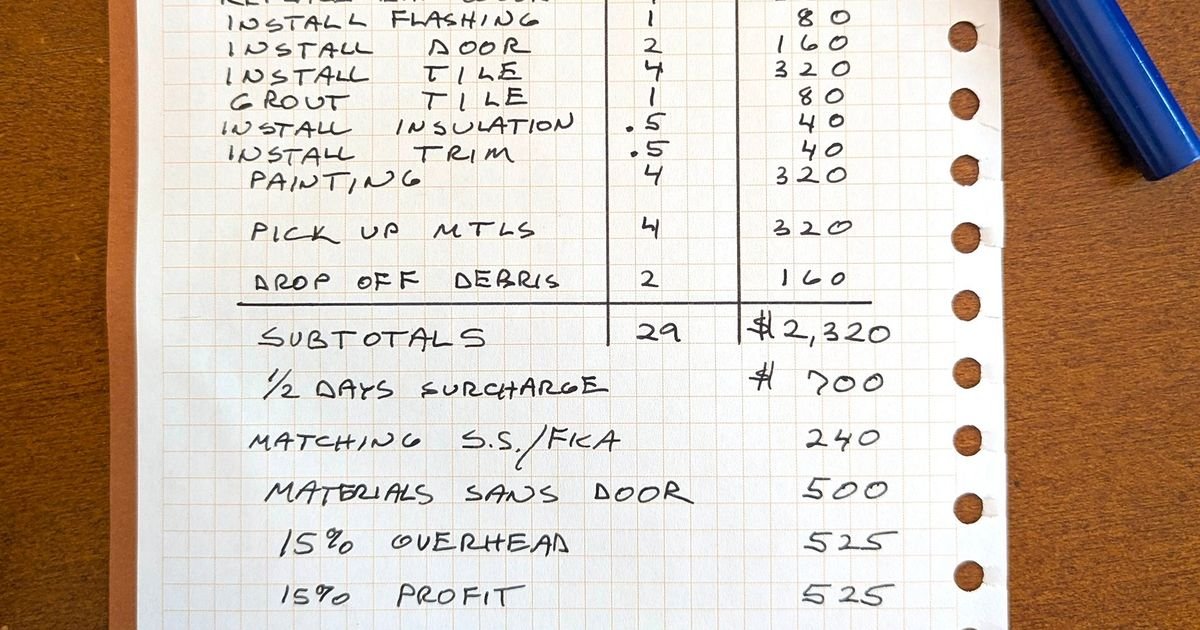 INSTALL FLASHING 1 80
INSTALL DOOR 2 160
INSTALL TILE 4 320
GROUT TILE 1 80
INSTALL INSULATION .5 40
INSTALL TRIM .5 40
PAINTING 4 320
PICK UP MTLS 4 320
DROP OFF DEBRIS 2 160
SUBTOTALS 29 $2,320
1/2 DAYS SURCHARGE $ 700
MATCHING S.S./FKA 240
MATERIALS SANS DOOR 500
15% OVERHEAD 525
15% PROFIT 525